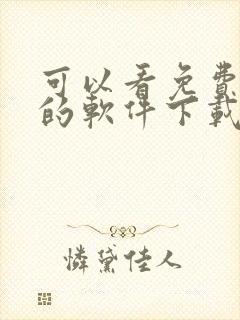 可以看免費
的軟件下載
憐黛佳人